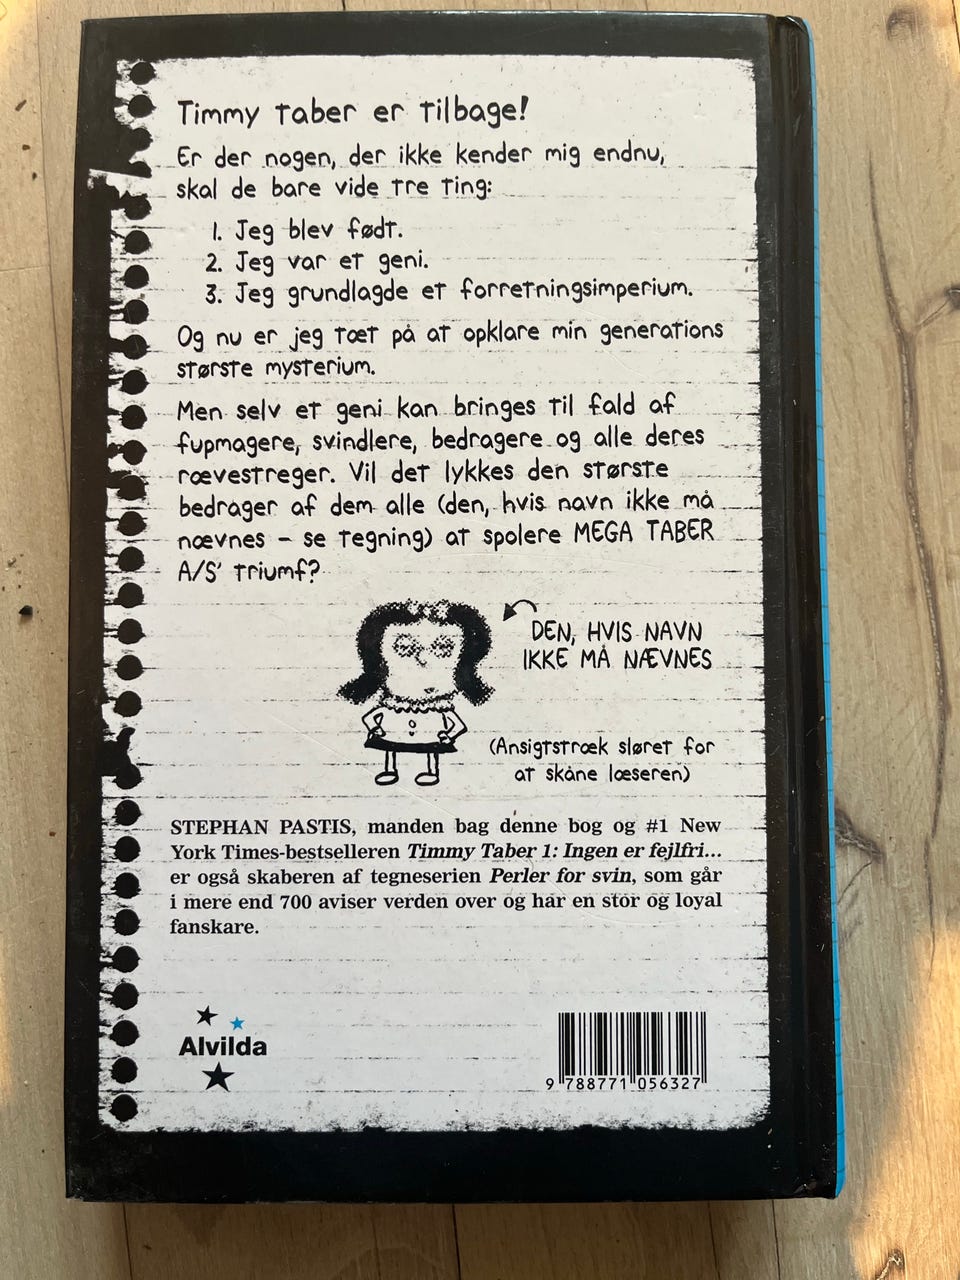 Timmy Taber er tilbage!
Er der nogen, der ikke kender mig endnu,
skal de bare vide tre ting:
1. Jeg blev født.
2. Jeg var et geni.
3. Jeg grundlagde et forretningsimperium.
Og nu er jeg tæt på at opklare min generations
største mysterium.
Men selv et geni kan bringes til fald af
fupmagere, svindlere, bedragere og alle deres
rævestreger. Vil det lykkes den største
bedrager af dem alle (den, hvis navn ikke må
nævnes – se tegning) at spolere MEGA TABER
A/S' triumf?
DEN, HVIS NAVN
IKKE MÅ NÆVNES
(Ansigtstræk sløret for
at skåne læseren)
STEPHAN PASTIS, manden bag denne bog og #1 New
York Times-bestselleren Timmy Taber 1: Ingen er fejlfri...
er også skaberen af tegneserien Perler for svin, som går
i mere end 700 aviser verden over og har en stor og loyal
fanskare.
Alvilda
9 788771 056327